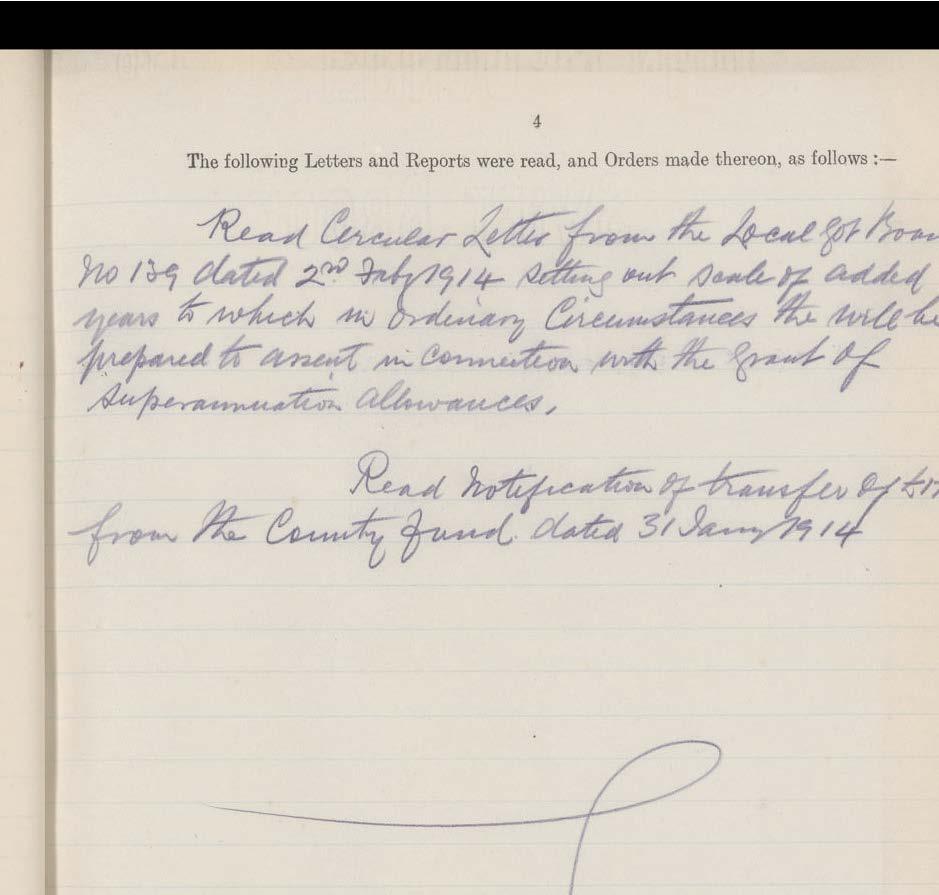 4
The following Letters and Reports were read, and Orders made thereon, as follows :—
Read Circular Letter from the Local Got Boar
No 139 dated 2nd Feby 1914 setting out scale of added
years to which in Ordinary Circumstances the will be
prepared to assent in connection with the grant of
Superannuation Allowances.
Read Notification of transfer of
from the County Fund dated 31 Jany 1914